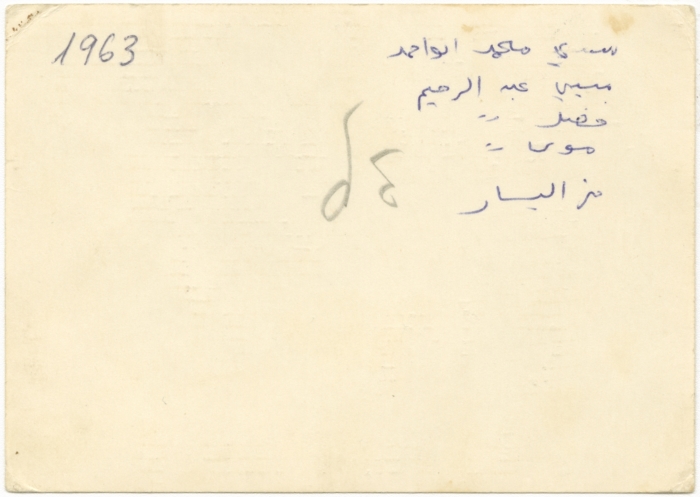 1963
سيدي محمد ابواحمد
عبد الرحيم
فضل "
موسى "
من اليسار